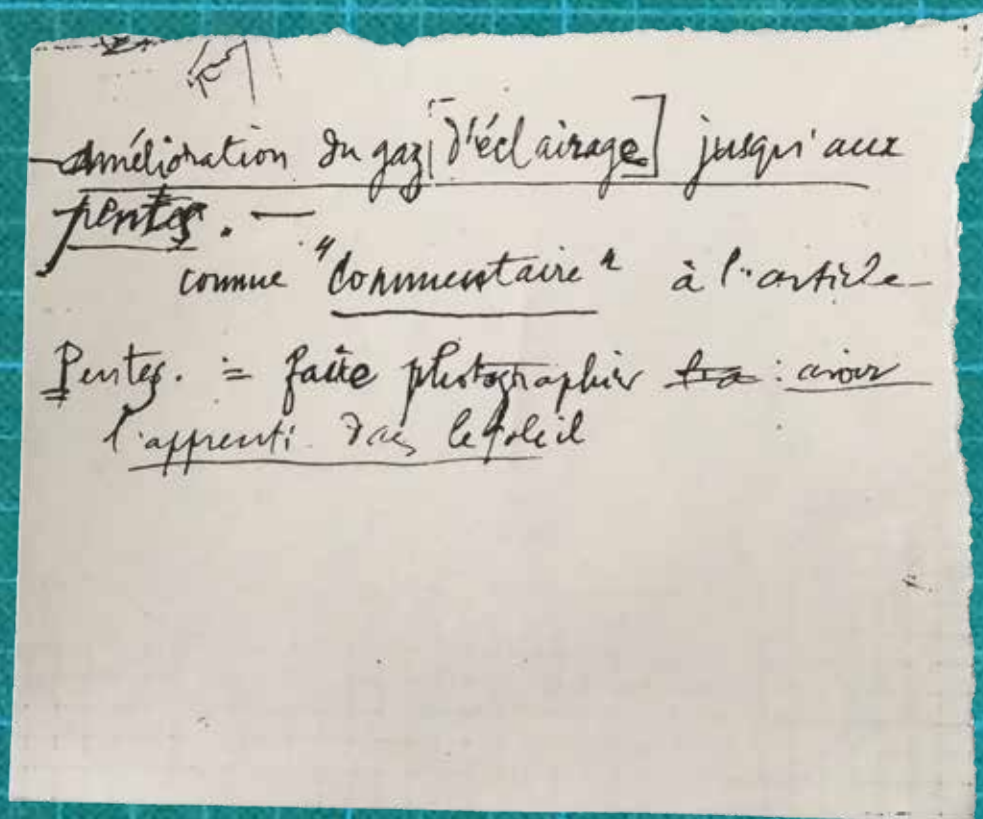 —amélioration du gaz [d'éclairage] jusqu'aux
pentes. —
comme "Commentaire" à l'article
Pentes. = faire photographier : avoir
l'apprenti dans le soleil